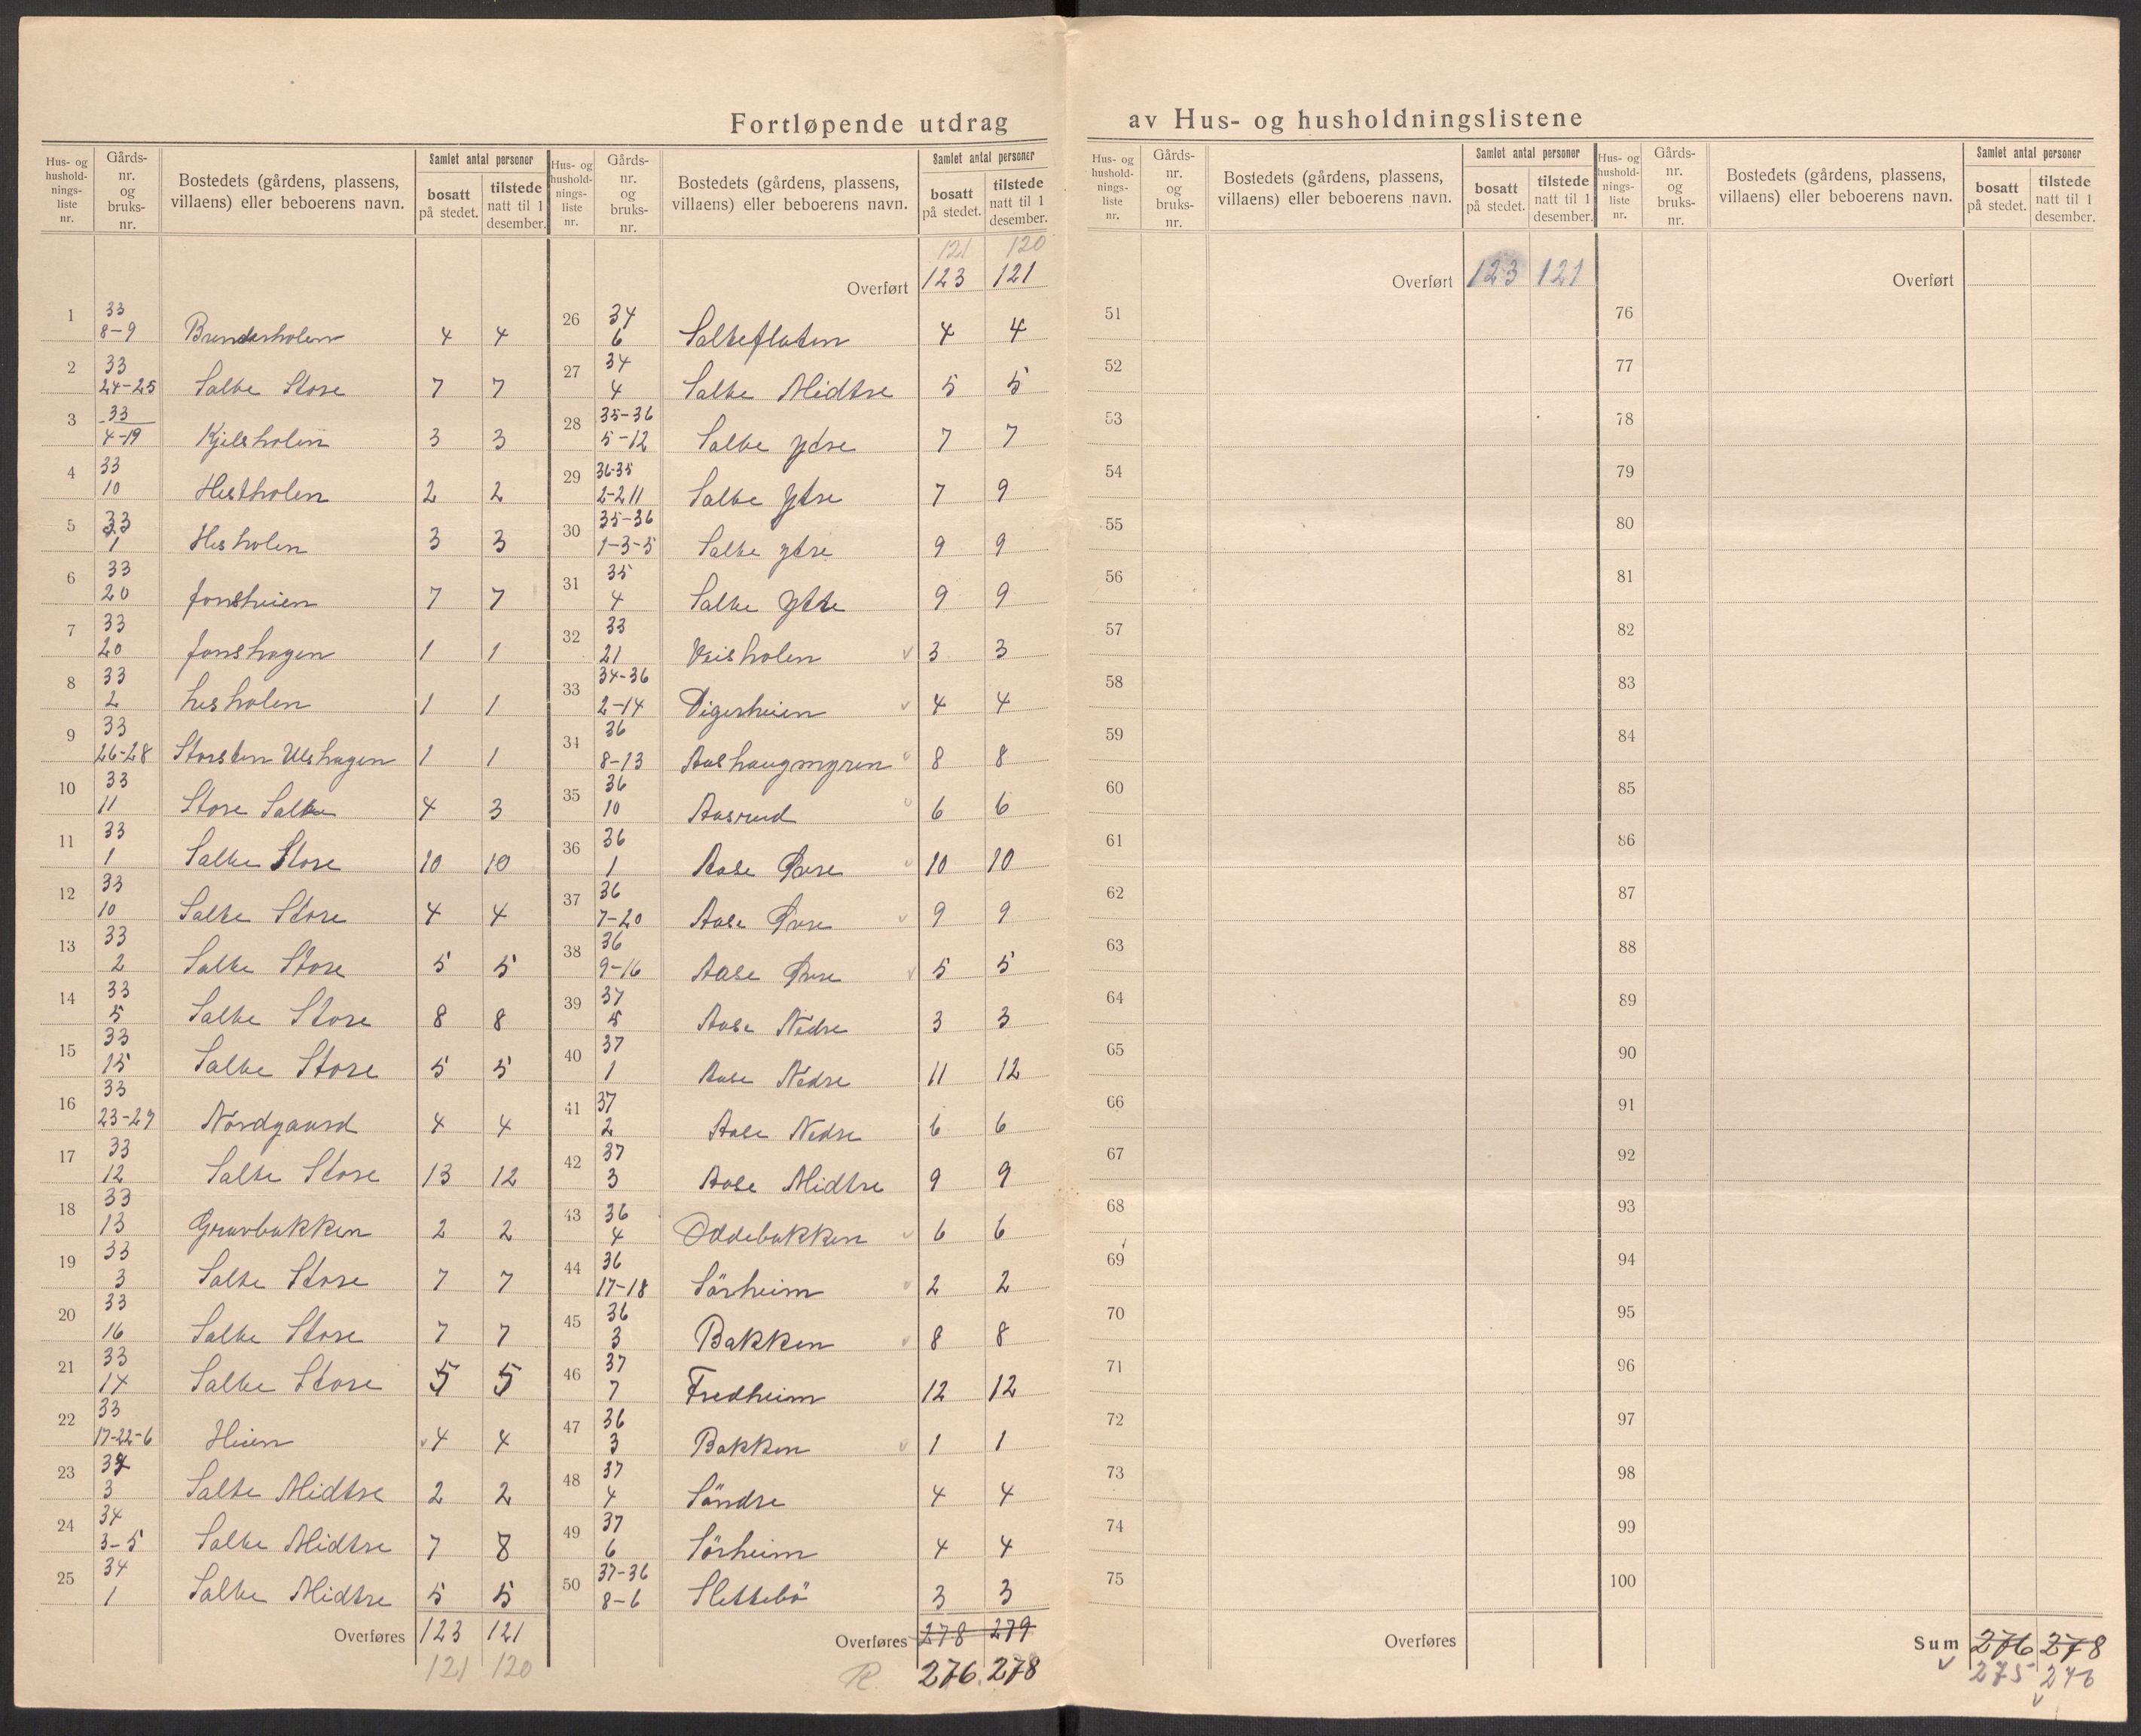 Fortløpende utdrag av Hus- og husholdningslistene
Hus- og husholdnings-liste nr. Gårds-nr. og bruks-nr. Bostedets (gårdens, plassens, villaens) eller beboerens navn. Samlet antal personer bosatt på stedet. tilstede natt til 1 desember.
1 33 8-9 Brendesholen 4 4
2 33 24-25 Salte Store 7 7
3 33 4-19 Kjelsholen 3 3
4 33 10 Hestholen 2 2
5 33 1 Hesholen 3 3
6 33 20 Jonsheien 7 7
7 33 20 Jonshagen 1 1
8 33 2 hesholen 1 1
9 33 26-28 Storsten Ulshagen 1 1
10 33 11 Store Salte 4 3
11 33 1 Salte Store 10 10
12 33 10 Salte Store 4 4
13 33 2 Salte Store 5 5
14 33 5 Salte Store 8 8
15 33 15 Salte Store 5 5
16 33 23-27 Nordgaard 4 4
17 33 12 Salte Store 13 12
18 33 13 Gravbakken 2 2
19 33 3 Salte Store 7 7
20 33 16 Salte Store 7 7
21 33 14 Salte Store 5 5
22 33 17-22-6 Heien 4 4
23 34 3 Salte Midtre 2 2
24 34 3-5 Salte Midtre 7 8
25 34 1 Salte Midtre 5 5
Overføres 123 121
121 120
Hus- og hushold-nings-liste nr. Gårds-nr. og bruks-nr. Bostedets (gårdens, plassens, villaens) eller beboerens navn. Samlet antal personer bosatt på stedet. tilstede natt til 1 desember.
121 120
Overført 123 121
26 34 6 Salteflaten 4 4
27 34 4 Salte Midtre 5 5
28 35-36 5-12 Salte Ydre 7 7
29 36-35 2-2 11 Salte Ytre 7 9
30 35-36 1-3-5 Salte Ytre 9 9
31 35 4 Salte Ytre 9 9
32 33 21 Veisholen 3 3
33 34-36 2-14 Digerheien 4 4
34 36 8-13 Aashaugmyren 8 8
35 36 10 Aasrud 6 6
36 36 1 Aase Øvre 10 10
37 36 7-20 Aase Øvre 9 9
38 36 9-16 Aase Øvre 5 5
39 37 5 Aase Nedre 3 3
40 37 1 Aase Nedre 11 12
41 37 2 Aase Nedre 6 6
42 37 3 Aase Midtre 9 9
43 36 4 Oddebakken 6 6
44 36 17-18 Sörheim 2 2
45 36 3 Bakken 8 8
46 37 7 Fredheim 12 12
47 36 3 Bakken 1 1
48 37 4 Söndre 4 4
49 37 6 Sörheim 4 4
50 37-36 8-6 Slettebö 3 3
Overføres 278 279
R. 276. 278
Hus- og hushold-nings-liste nr. Gårds-nr. og bruks-nr. Bostedets (gårdens, plassens, villaens) eller beboerens navn. Samlet antal personer bosatt på stedet. tilstede natt til 1 desember.
Overført 123 121
51
52
53
54
55
56
57
58
59
60
61
62
63
64
65
66
67
68
69
70
71
72
73
74
75
Overføres
Hus- og hushold-nings-liste nr. Gårds-nr. og bruks-nr. Bostedets (gårdens, plassens, villaens) eller beboerens navn. Samlet antal personer bosatt på stedet. tilstede natt til 1 desember.
Overført
76
77
78
79
80
81
82
83
84
85
86
87
88
89
90
91
92
93
94
95
96
97
98
99
100
Sum 276 278
275 276